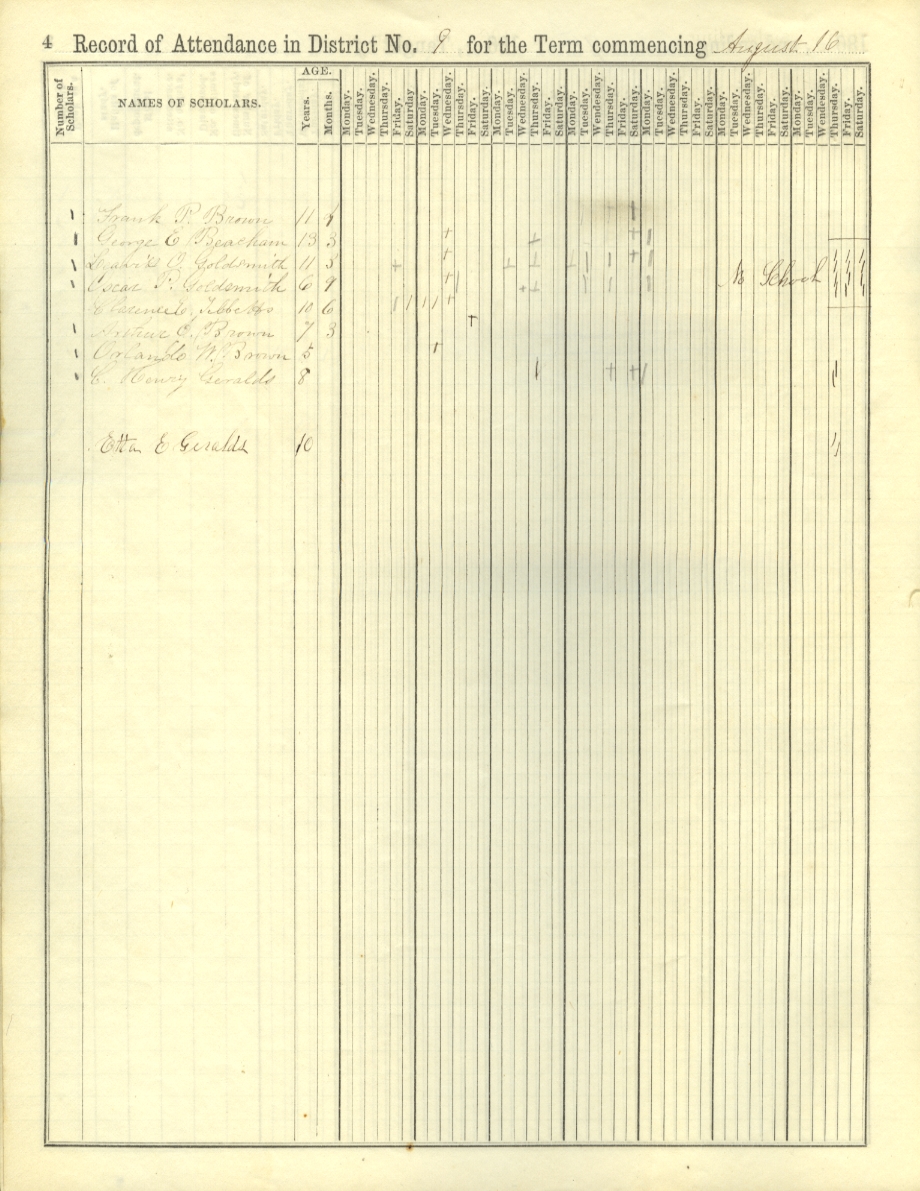 4 Record of Attendance in District No. 9 for the Term commencing August 16
Number of Scholars. NAMES OF SCHOLARS. AGE. Years. Months. Monday. Tuesday. Wednesday. Thursday. Friday. Saturday Monday. Tuesday. Wednesday. Thursday. Friday. Saturday. Monday. Tuesday. Wednesday. Thursday. Friday. Saturday. Monday. Tuesday. Wednesday. Thursday. Friday. Saturday. Monday. Tuesday. Wednesday. Thursday. Friday. Saturday. Monday. Tuesday. Wednesday. Thursday. Friday. Saturday. Monday. Tuesday. Wednesday. Thursday. Friday. Saturday.
Frank P. Brown 11 4
George E. Beacham 13 3
O. Goldsmith 11 5
Oscar P. Goldsmith 6 9 No School
Clarence Tibbetts 10 6
Arthur O. Brown 7 3
Orlando W. Brown 5
C. Henry Geralds 8
Etta E Geralds 10